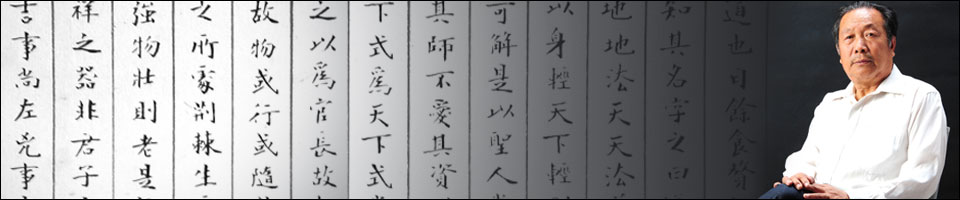 道也曰餘食贅
知其名字之曰
地地法天天法
以身輕天下輕
可解是以聖人
其師不愛其資
下式爲天下式
之以爲官長故
故物或行或隨
之所處荊棘生
強物壯則老是
祥之器非君子
吉事尚左兇事